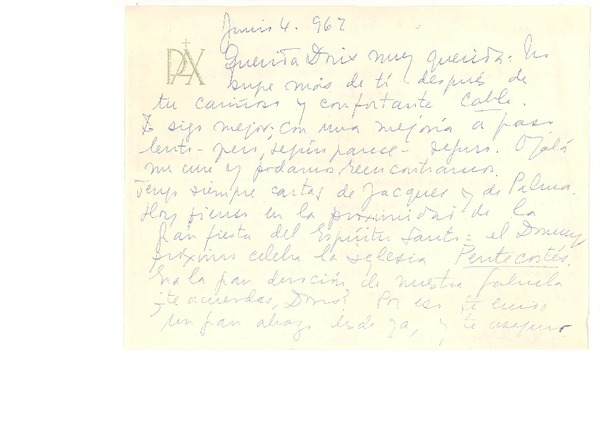 Junio 4. 967
PAX
Querida Doris muy querida: No
supe más de ti después de
tu cariñoso y confortante Cable.
Yo sigo mejor; con una mejoría a paso
lento - pero, según parece - seguro. Ojalá
me cure y podamos reencontrarnos.
Tengo siempre cartas de Jacques y de Palma.
Hoy pienso en la proximidad de la
gran fiesta del Espíritu Santo: el Domingo
próximo celebra la Iglesia Pentecostés.
Era la gran devoción de nuestra Gabriela
¿te acuerdas, Doris? Por eso te envío
un gran abrazo desde ya, y te aseguro